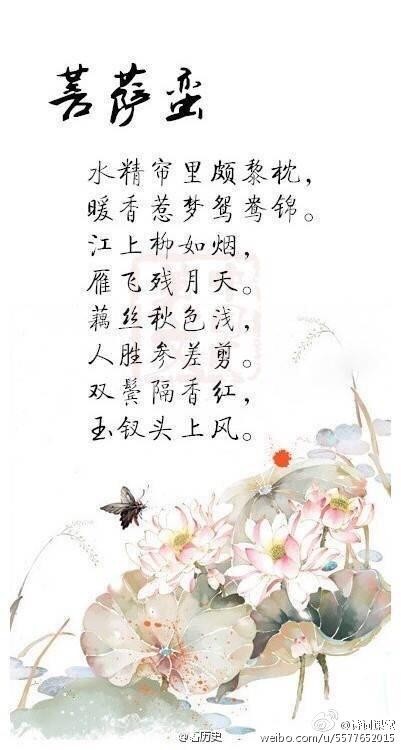 菩萨蛮
水精帘里颇黎枕，
暖香惹梦鸳鸯锦。
江上柳如烟，
雁飞残月天。
藕丝秋色浅，
人胜参差剪。
双鬓隔香红，
玉钗头上风。
@看历史
weibo.com/u/5577652015